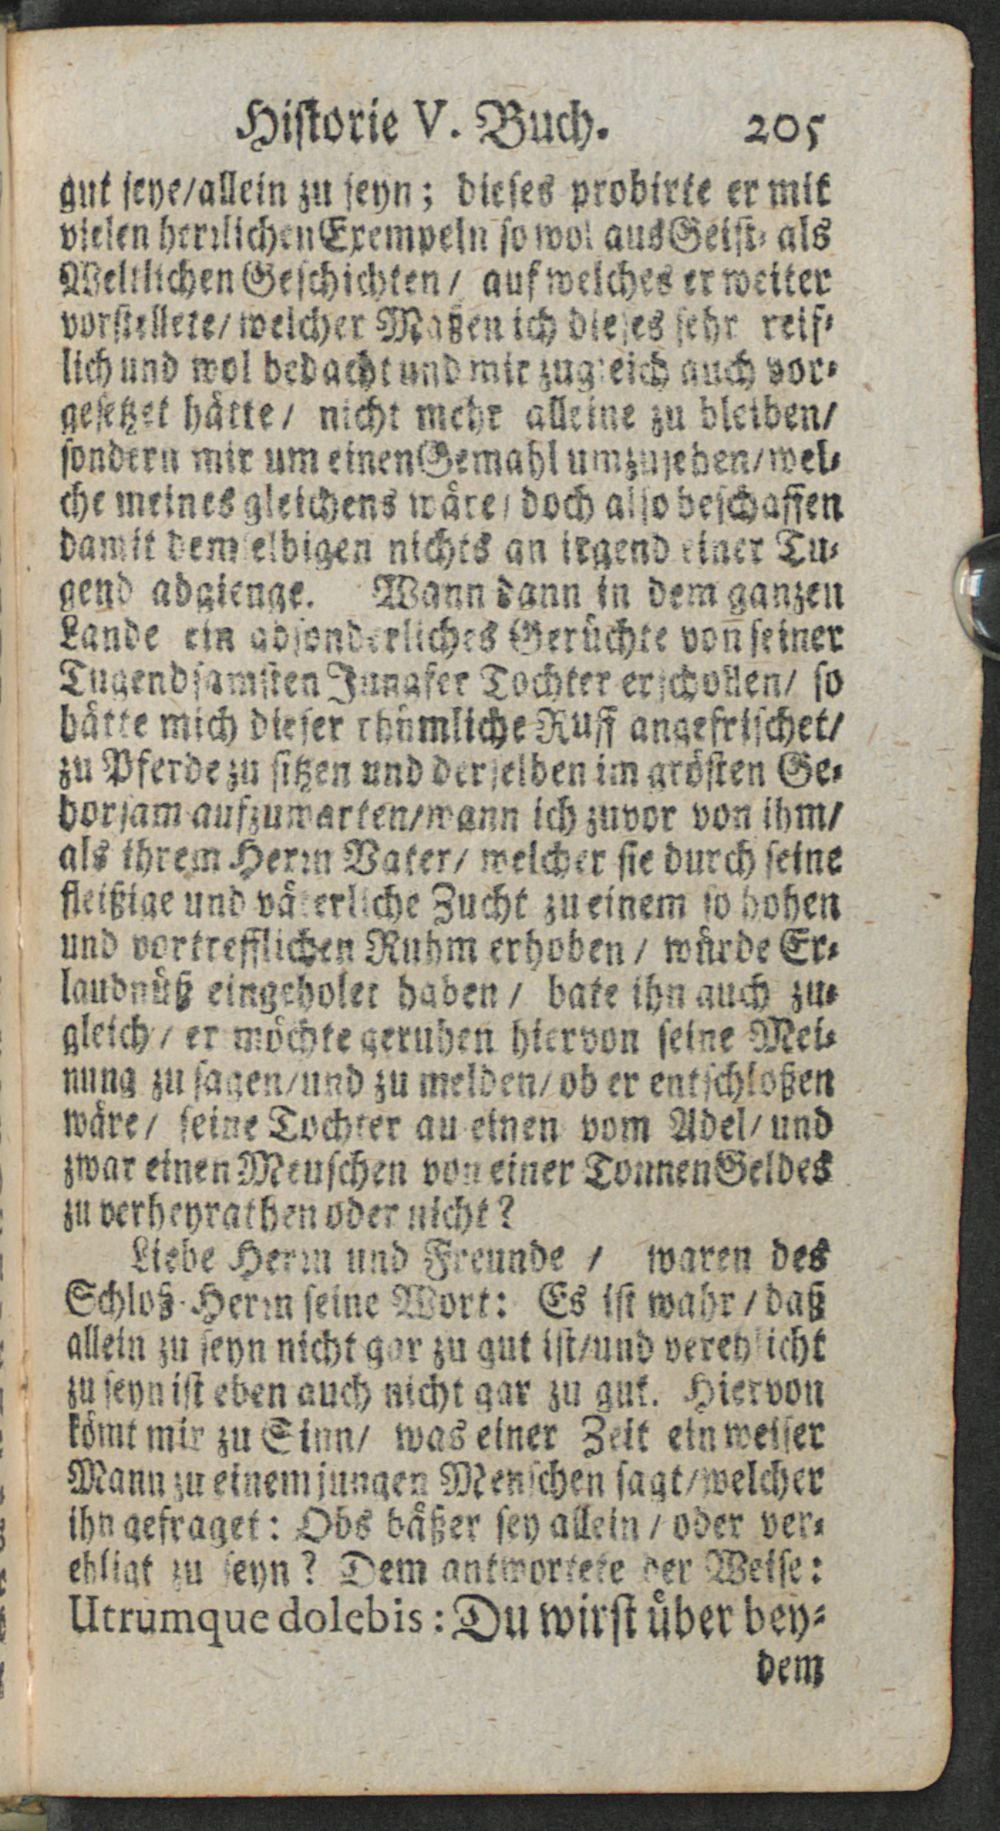 Historie V. Buch. 205
gut seye/allein zu seyn; dieses probirte er mit
vielen herꝛlichen Exempeln so wol aus Geist- als
Weltlichen Geschichten / auf welches er weiter
vorstellete/ welcher Maßen ich dieses sehr reif-
lich und wol bedacht und mir zugleich auch vor-
gesetzet hätte / nicht mehr alleine zu bleiben/
sondern mir um einen Gemahl umzusehen/wel-
che meines gleichens wäre/ doch also beschaffen
damit demselbigen nichts an irgend einer Tu-
gend abgienge. Wann dann in dem ganzen
Lande ein absonderliches Gerüchte von seiner
Tugendsamsten Jungfer Tochter erschollen/ so
hätte mich dieser rhümliche Ruff angefrischet/
zu Pferde zu sitzen und derselben im grösten Ge-
horsam aufzuwarten/wann ich zuvor von ihm/
als ihrem Herꝛn Vater/ welcher sie durch seine
fleißige und väterliche Zucht zu einem so hohen
und vortrefflichen Ruhm erhoben / würde Er-
laubnüß eingeholet haben / bate ihn auch zu-
gleich / er möchte geruhen hiervon seine Mei-
nung zu sagen/und zu melden/ ob er entschloßen
wäre / seine Tochter an einen vom Adel/ und
zwar einen Menschen von einer Tonnen Geldes
zu verheyrathen oder nicht?
Liebe Herꝛn und Freunde / waren des
Schloß-Herꝛn seine Wort: Es ist wahr / daß
allein zu seyn nicht gar zu gut ist/und verehlicht
zu seyn ist eben auch nicht gar zu gut. Hiervon
kömt mir zu Sinn/ was einer Zeit ein weiser
Mann zu einem jungen Menschen sagt/welcher
ihn gefraget: Obs bäßer sey allein / oder ver-
ehligt zu seyn? Dem antwortete der Weise:
Utrumque dolebis: Du wirst über bey-
dem